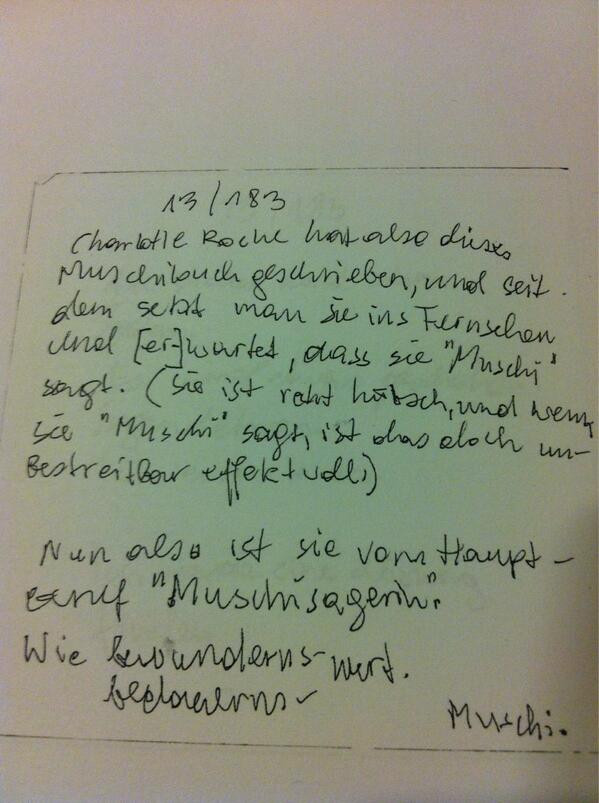 13/183
Charlotte Roche hat also dieses
Muschibuch geschrieben, und seit-
dem setzt man sie ins Fernsehen
und [er]wartet, dass sie "Muschi"
sagt. (Sie ist recht hübsch, und wenn
sie "Muschi" sagt, ist das doch un-
bestreitbar effektvoll.)
Nun also ist sie vom Haupt-
beruf "Muschisagerin".
Wie bewunderns- wert.
bedauerns-
Muschi.